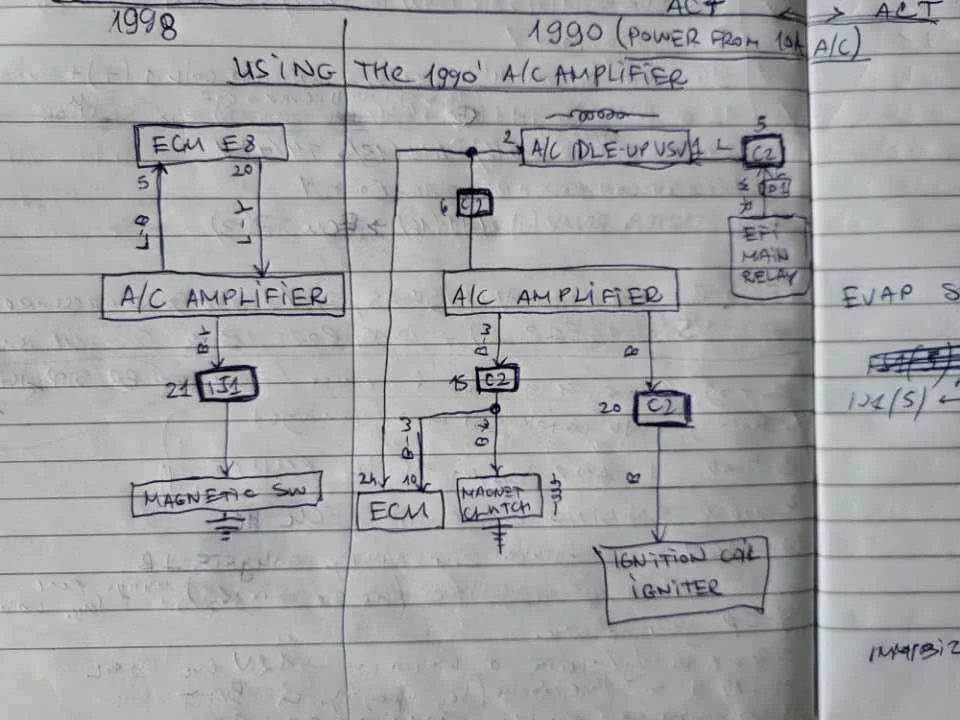 ACT ACT
1998
1990 (POWER FROM 10A A/C)
USING THE 1990' A/C AMPLIFIER
ECM E8
5 20
L-Y
A/C AMPLIFIER
B-Y
21 IJ1
MAGNETIC SW
5
2 A/C IDLE-UP VSV 1 L C2
6 C2
EFI
MAIN
RELAY
A/C AMPLIFIER
B-W
B
15 C2
20 C2
B-W
B
24 10
ECM
MAGNET
CLUTCH
IGNITION COIL
IGNITER
EVAP